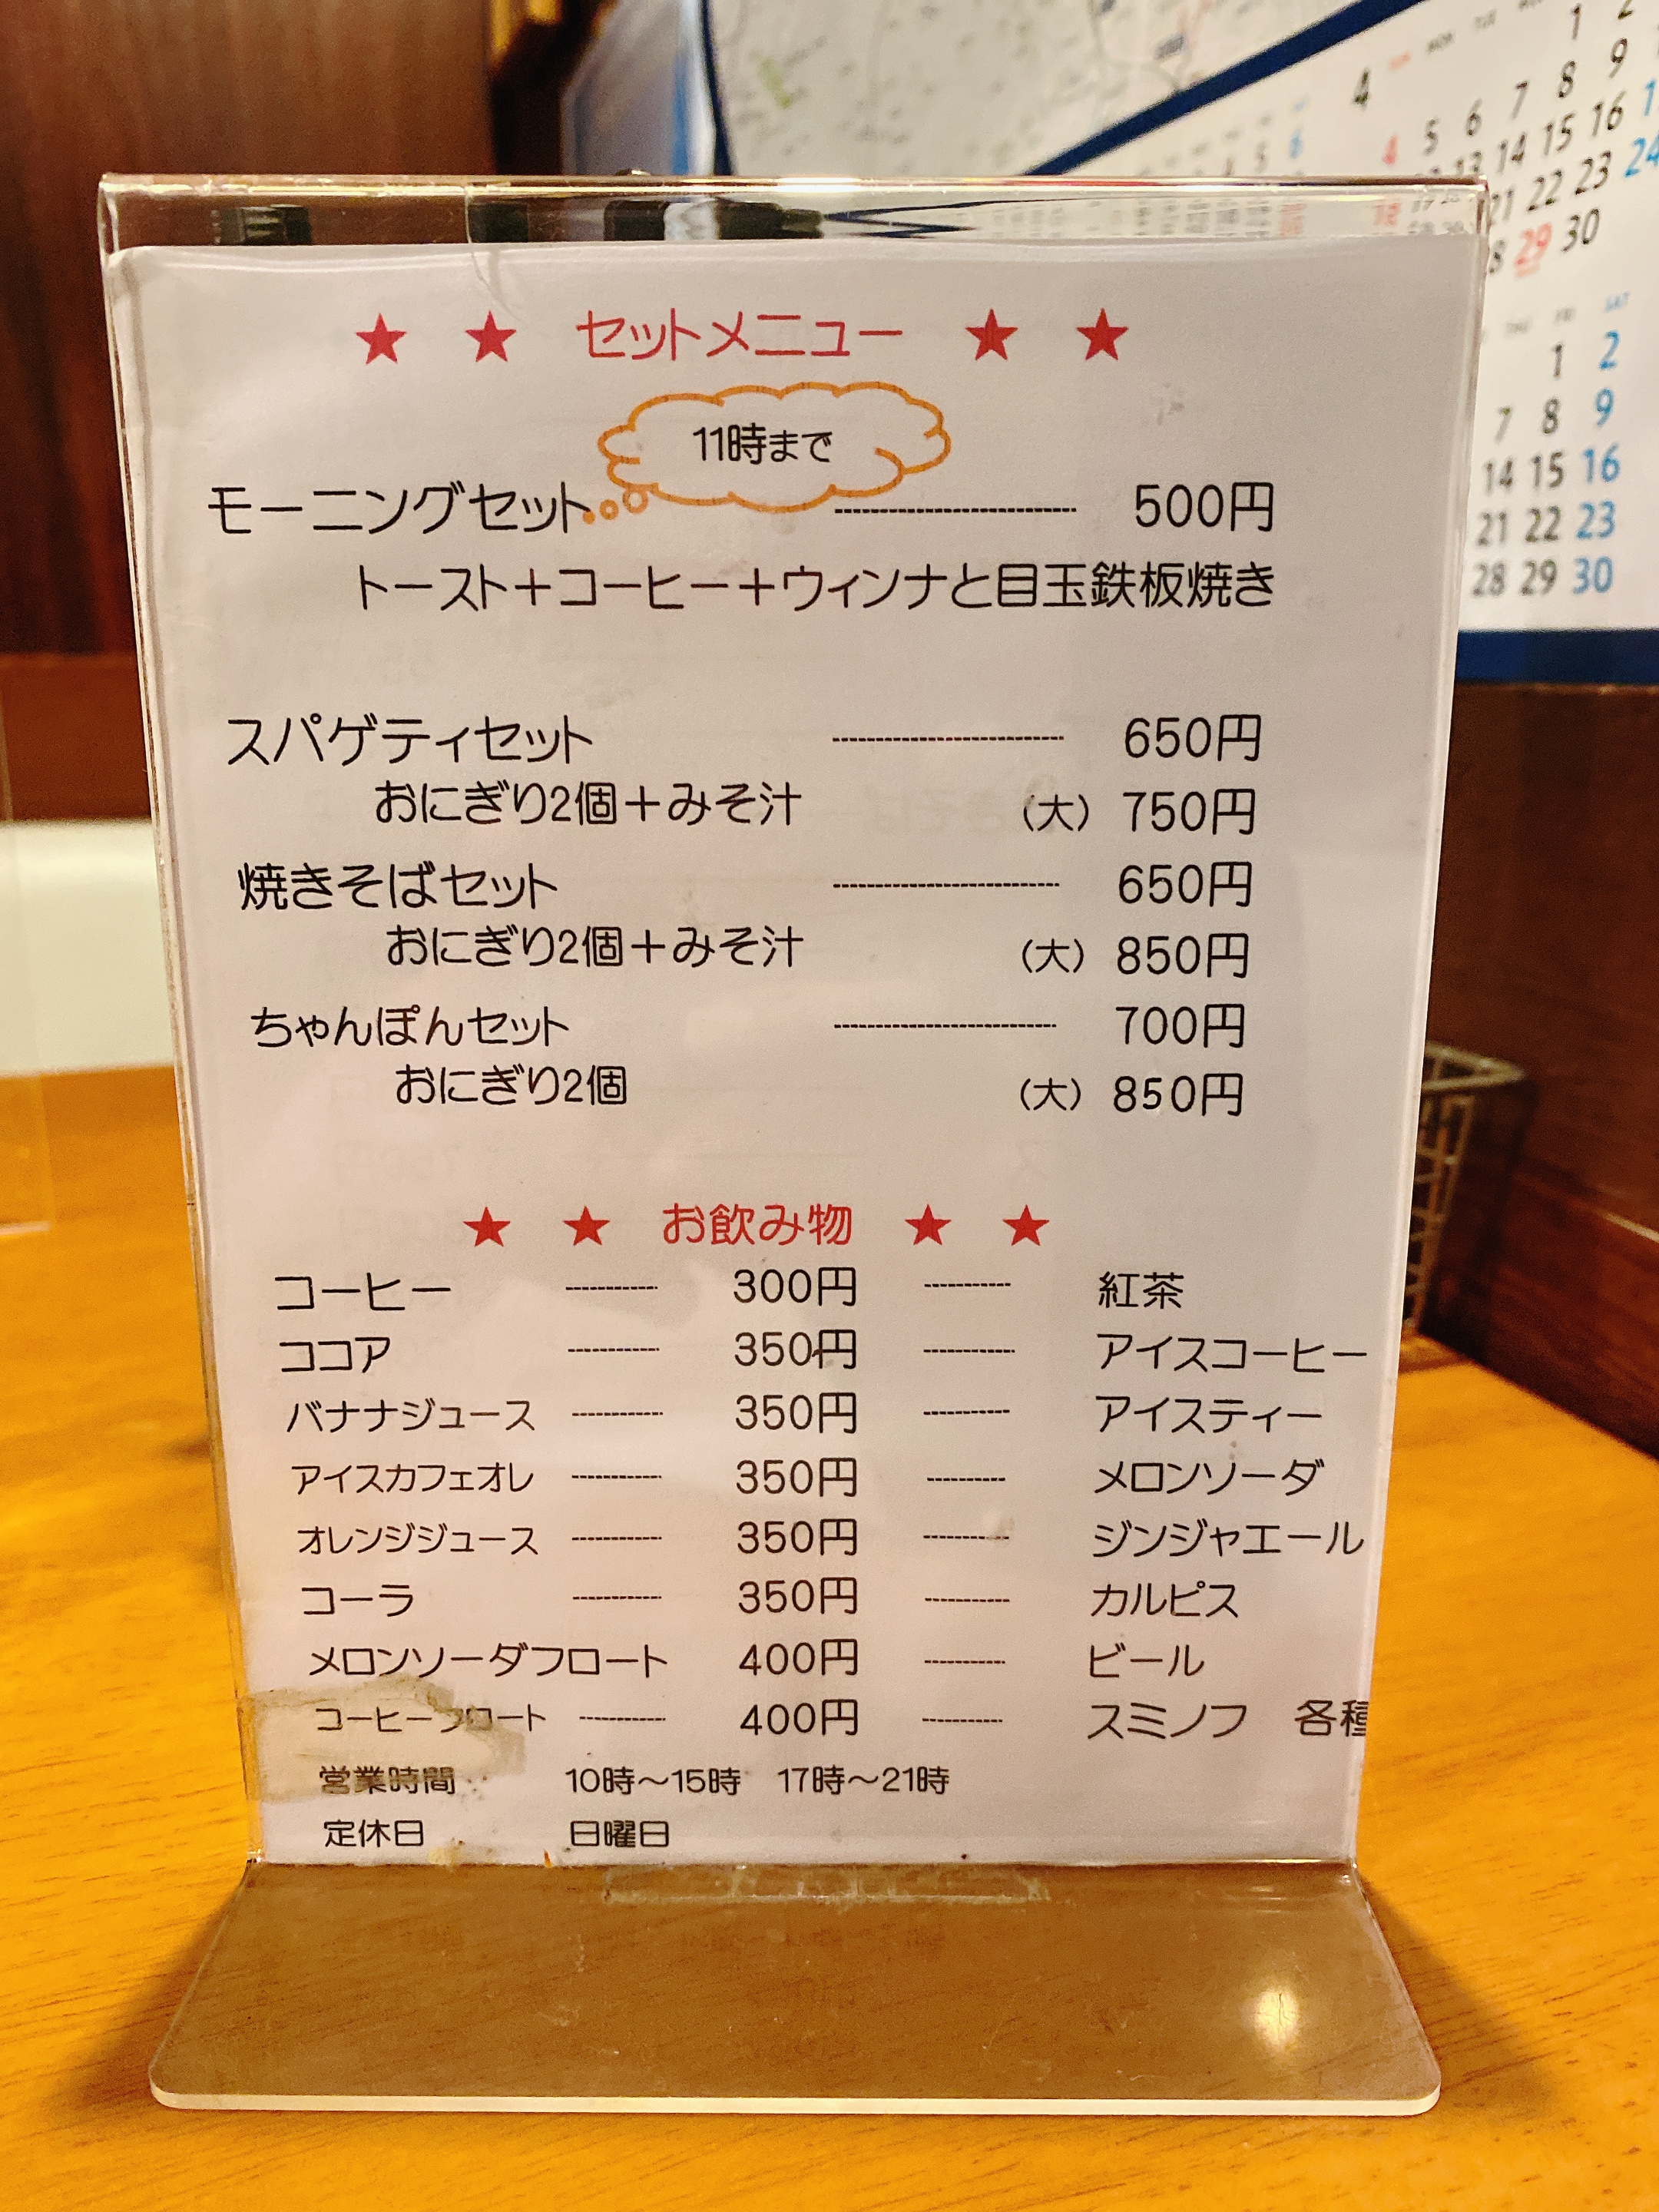 ★ ★ セットメニュー ★ ★
11時まで
モーニングセット ---------- 500円
トースト＋コーヒー＋ウィンナと目玉鉄板焼き
スパゲティセット ---------- 650円
おにぎり2個＋みそ汁 (大) 750円
焼きそばセット ---------- 650円
おにぎり2個＋みそ汁 (大) 850円
ちゃんぽんセット ---------- 700円
おにぎり2個 (大) 850円
★ ★ お飲み物 ★ ★
コーヒー ------ 300円 ------ 紅茶
ココア ------ 350円 ------ アイスコーヒー
バナナジュース ------ 350円 ------ アイスティー
アイスカフェオレ ------ 350円 ------ メロンソーダ
オレンジジュース ------ 350円 ------ ジンジャエール
コーラ ------ 350円 ------ カルピス
メロンソーダフロート 400円 ------ ビール
コーヒーフロート ------ 400円 ------ スミノフ 各種
営業時間 10時～15時 17時～21時
定休日 日曜日
4
1
5 6 7 8 9
14 15 16
21 22 23 24
29 30
THU FRI SAT
1 2
7 8 9
14 15 16
21 22 23
28 29 30